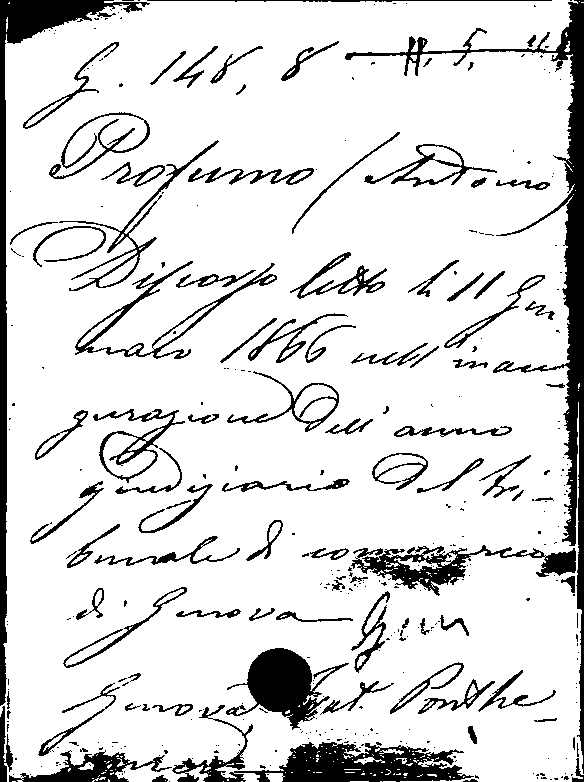 G. 148, 8
Profumo (Antonio)
Discorso letto li 11 Gen
naio 1866 nell'inau-
gurazione dell'anno
giudiziario del tri-
bunale di commercio
di Genova
Genova, Frat. Ponthe-